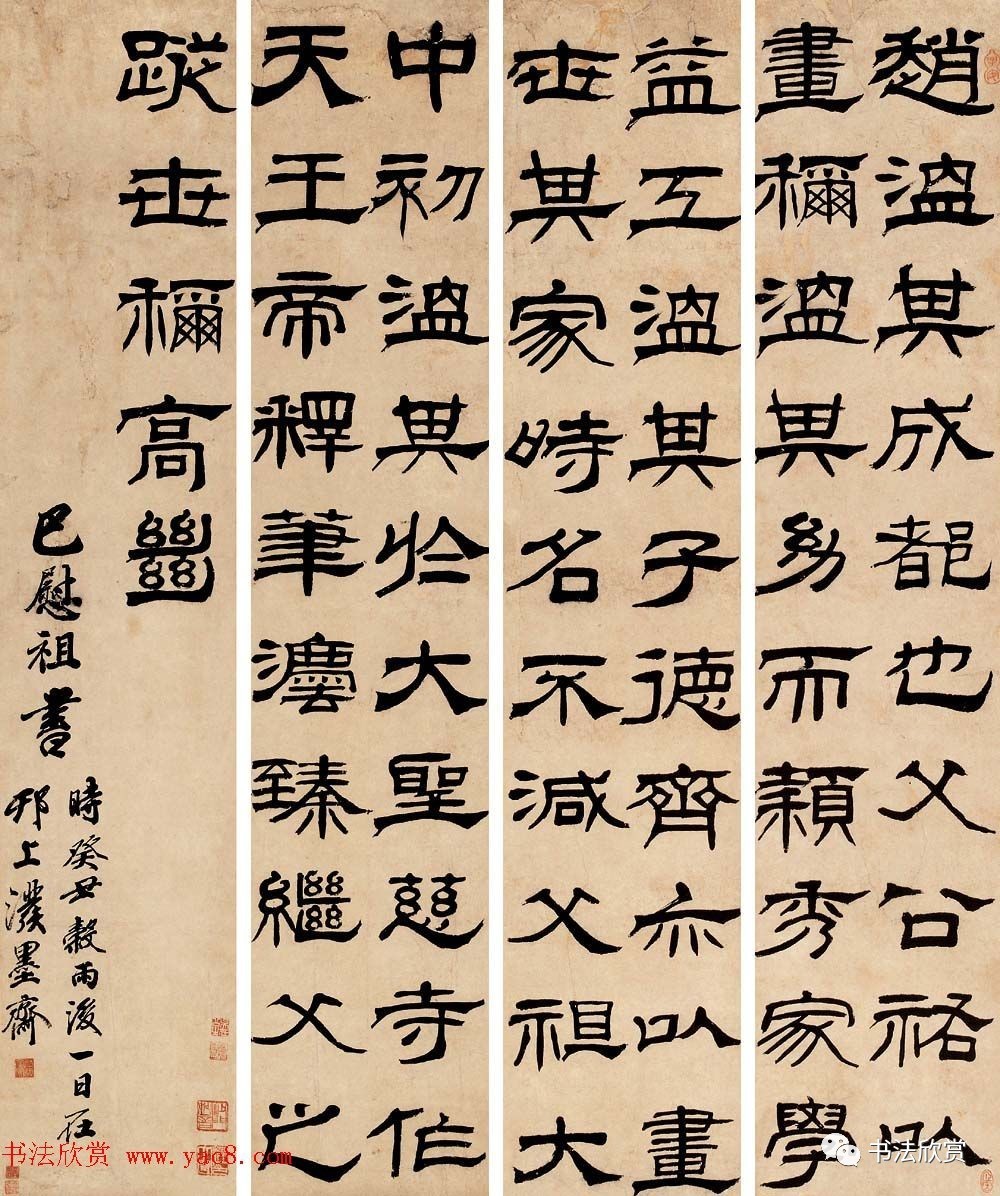 趙溫其成都也父公祐以
畫稱溫其幼而穎秀家學
益工溫其子德齊亦以畫
世其家時名不減父祖大
中初溫其於大聖慈寺作
天王帝釋筆灋臻繼父之
蹤世稱高絕
巴慰祖書
時癸丑穀雨後一日在
邗上潑墨齋
书法欣赏 www.yac8.com
书法欣赏